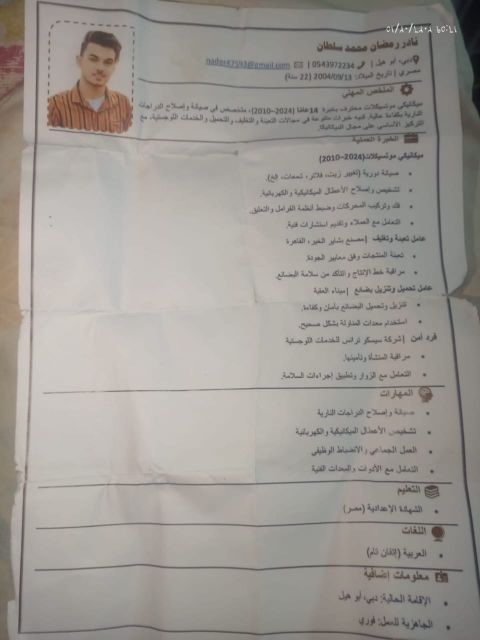 نادر رمضان محمد سلطان
دبي، أبو هيل | 0543972234 | nader47593@gmail.com
مصري | تاريخ الميلاد: 2004/09/13 (22 سنة)
الملخص المهني
ميكانيكي موتسيكلات محترف بخبرة 14 عامًا (2024–2010)، متخصص في صيانة وإصلاح الدراجات
النارية بكفاءة عالية. لديه خبرات متنوعة في مجالات التعبئة والتغليف، والتحميل والخدمات اللوجستية، مع
التركيز الأساسي على مجال الميكانيكا.
الخبرة العملية
ميكانيكي موتسيكلات(2024–2010)
• صيانة دورية (تغيير زيت، فلاتر، شمعات، الخ).
• تشخيص وإصلاح الأعطال الميكانيكية والكهربائية.
• فك وتركيب المحركات وضبط أنظمة الفرامل والتعليق.
• التعامل مع العملاء وتقديم استشارات فنية.
عامل تعبئة وتغليف | مصنع بشاير الخير، القاهرة
• تعبئة المنتجات وفق معايير الجودة.
• مراقبة خط الإنتاج والتأكد من سلامة البضائع.
عامل تحميل وتنزيل بضائع | ميناء العقبة
• تنزيل وتحميل البضائع بأمان وكفاءة.
• استخدام معدات المناولة بشكل صحيح.
فرد أمن | شركة سيسكو ترانس للخدمات اللوجستية
• مراقبة المنشأة وتأمينها.
• التعامل مع الزوار وتطبيق إجراءات السلامة.
المهارات
• صيانة وإصلاح الدراجات النارية
• تشخيص الأعطال الميكانيكية والكهربائية
• العمل الجماعي والانضباط الوظيفي
• التعامل مع الأدوات والمعدات الفنية
التعليم
• الشهادة الإعدادية (مصر)
اللغات
• العربية (إتقان تام)
معلومات إضافية
• الإقامة الحالية: دبي، أبو هيل
• الجاهزية للعمل: فوري